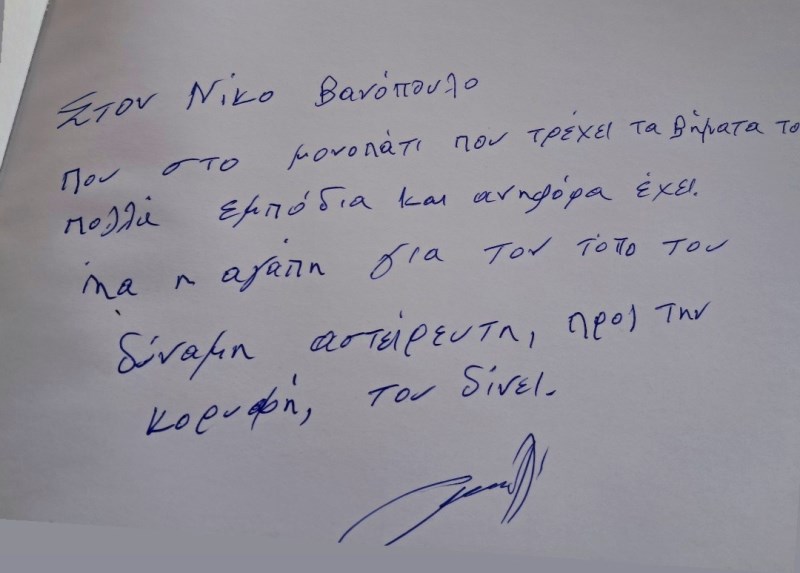 Στον Νίκο Βανόπουλο
που στο μονοπάτι που τρέχει τα βήματα το
πολλά εμπόδια και ανηφόρα έχει.
μα η αγάπη για τον τόπο του
δύναμη αστείρευτη, προς την
κορυφή, του δίνει.